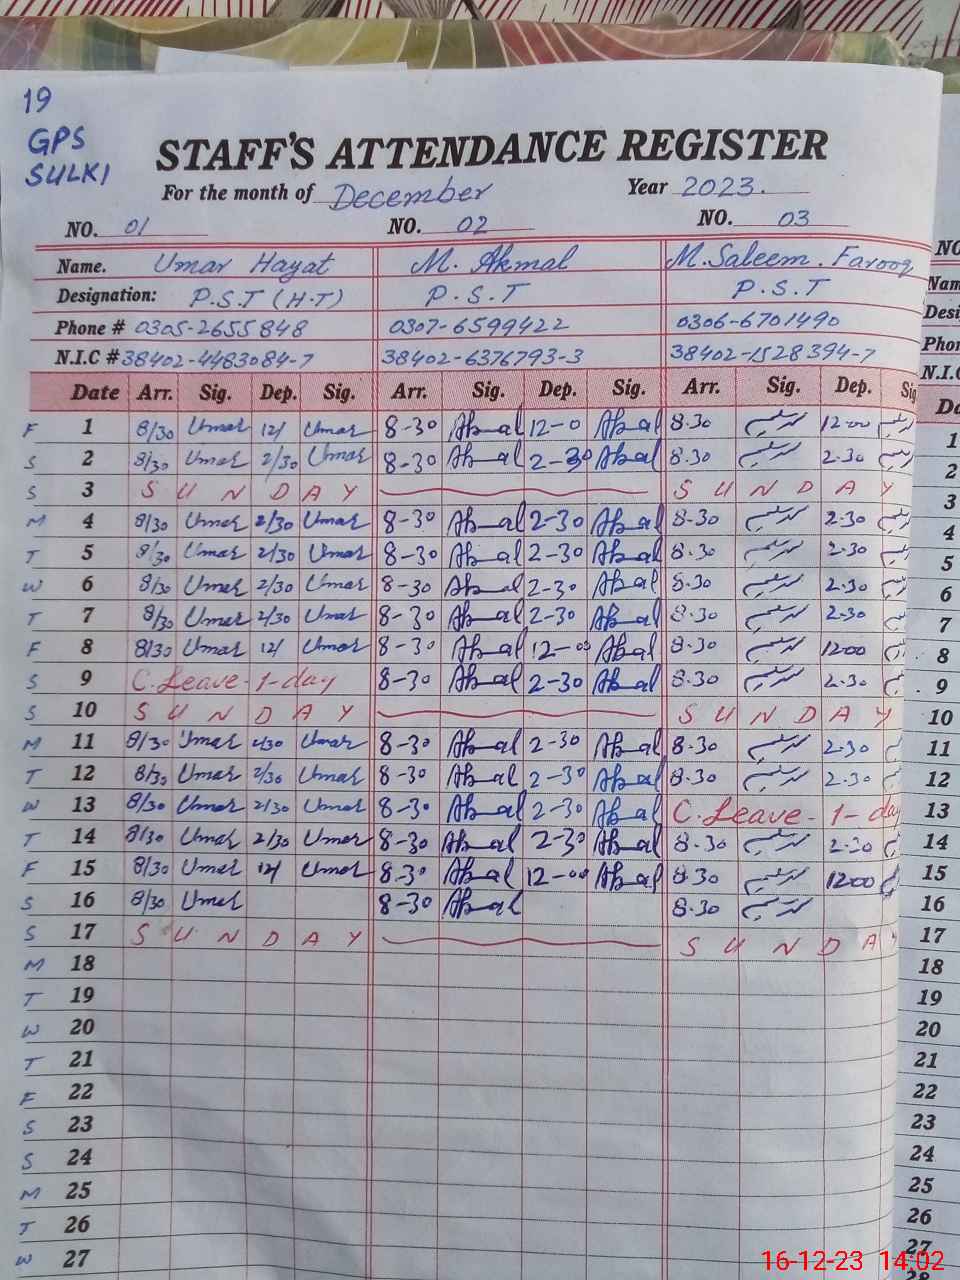 19
GPS
SULKI
STAFF'S ATTENDANCE REGISTER
For the month of December Year 2023.
NO. 01 NO. 02 NO. 03
Name. Umar Hayat M. Akmal M. Saleem. Farooq
Designation: P.S.T (H.T) P.S.T P.S.T
Phone # 0305-2655848 0307-6599422 0306-6701490
N.I.C # 38402-4483084-7 38402-6376793-3 38402-1528394-7
Date Arr. Sig. Dep. Sig. Arr. Sig. Dep. Sig. Arr. Sig. Dep. Sig
F 1 8/30 Umar 12/ Umar 8-30 Akmal 12-0 Akmal 8.30 12-00
S 2 8/30 Umar 2/30 Umar 8-30 Akmal 2-30 Akmal 8.30 2.30
S 3 SUNDAY SUNDAY
M 4 8/30 Umar 2/30 Umar 8-30 Akmal 2-30 Akmal 8-30 2.30
T 5 8/30 Umar 2/30 Umar 8-30 Akmal 2-30 Akmal 8.30 2.30
W 6 8/30 Umar 2/30 Umar 8-30 Akmal 2-30 Akmal 8.30 2.30
T 7 8/30 Umar 2/30 Umar 8-30 Akmal 2-30 Akmal 8.30 2.30
F 8 8/30 Umar 12/ Umar 8-30 Akmal 12-00 Akmal 8.30 1200
S 9 C. Leave - 1-day 8-30 Akmal 2-30 Akmal 8.30 2.30
S 10 SUNDAY SUNDAY
M 11 8/30 Umar 2/30 Umar 8-30 Akmal 2-30 Akmal 8.30 2.30
T 12 8/30 Umar 2/30 Umar 8-30 Akmal 2-30 Akmal 8.30 2.30
W 13 8/30 Umar 2/30 Umar 8-30 Akmal 2-30 Akmal C. Leave - 1-day
T 14 8/30 Umar 2/30 Umar 8-30 Akmal 2-30 Akmal 8.30 2.30
F 15 8/30 Umar 12/ Umar 8-30 Akmal 12-00 Akmal 8.30 1200
S 16 8/30 Umar 8-30 Akmal 8.30
S 17 SUNDAY SUNDAY
M 18
T 19
W 20
T 21
F 22
S 23
S 24
M 25
T 26
W 27
NO
Nam
Desi
Phon
N.I.C
Da
1
2
3
4
5
6
7
8
9
10
11
12
13
14
15
16
17
18
19
20
21
22
23
24
25
26
27
28
16-12-23 14:02